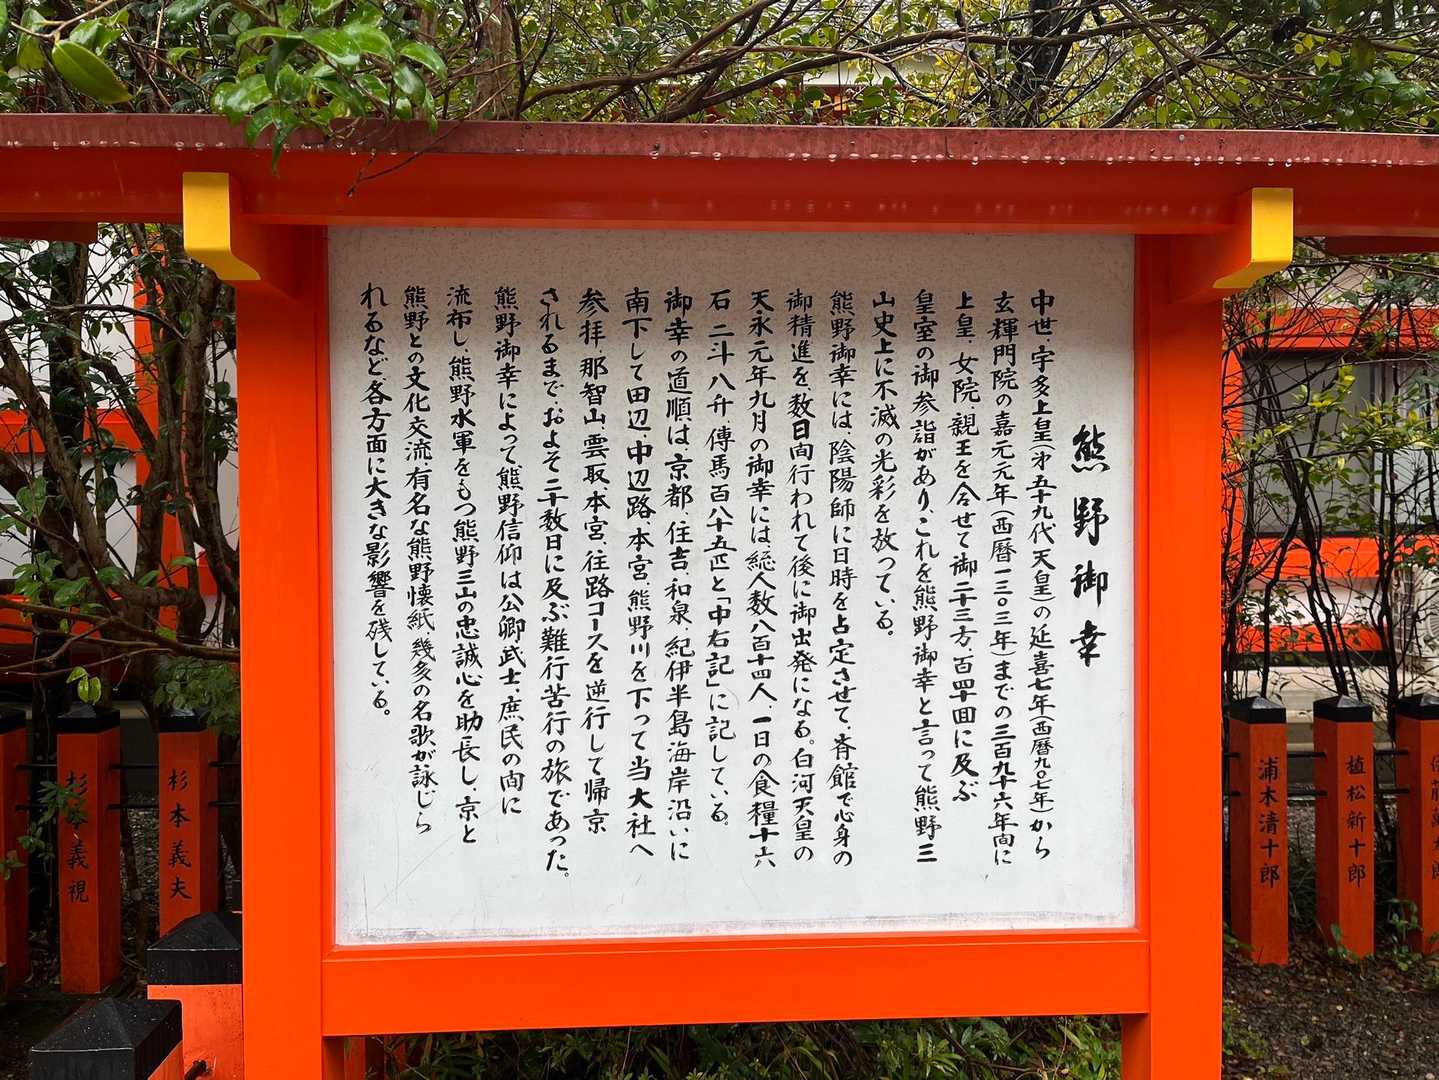 熊野御幸
中世、宇多上皇(才五十九代天皇)の延喜七年(西暦九〇七年)から
玄輝門院の嘉元元年(西暦一三〇三年)までの三百九十六年間に
上皇、女院、親王を合せて御二十三方、百四十回に及ぶ
皇室の御参詣があり、これを熊野御幸と言って熊野三
山史上に不滅の光彩を放っている。
熊野御幸には、陰陽師に日時を占定させて、斉館で心身の
御精進を、数日間行われて後に御出発になる。白河天皇の
天永元年九月の御幸には総人数八百十四人、一日の食糧十六
石二斗八升、傳馬百八十五匹と「中右記」に記している。
御幸の道順は、京都、住吉、和泉、紀伊半島海岸沿いに
南下して田辺、中辺路、本宮、熊野川を下って当大社へ
参拝、那智山、雲取、本宮、往路コースを逆行して帰京
されるまで、およそ二十数日に及ぶ難行苦行の旅であった。
熊野御幸によって熊野信仰は公卿、武士、庶民の間に
流布し、熊野水軍をもつ熊野三山の忠誠心を助長し、京と
熊野との文化交流、有名な熊野懐紙、幾多の名歌が詠じら
れるなど各方面に大きな影響を残している。
杉本義視
杉本義夫
浦木清十郎
植松新十郎